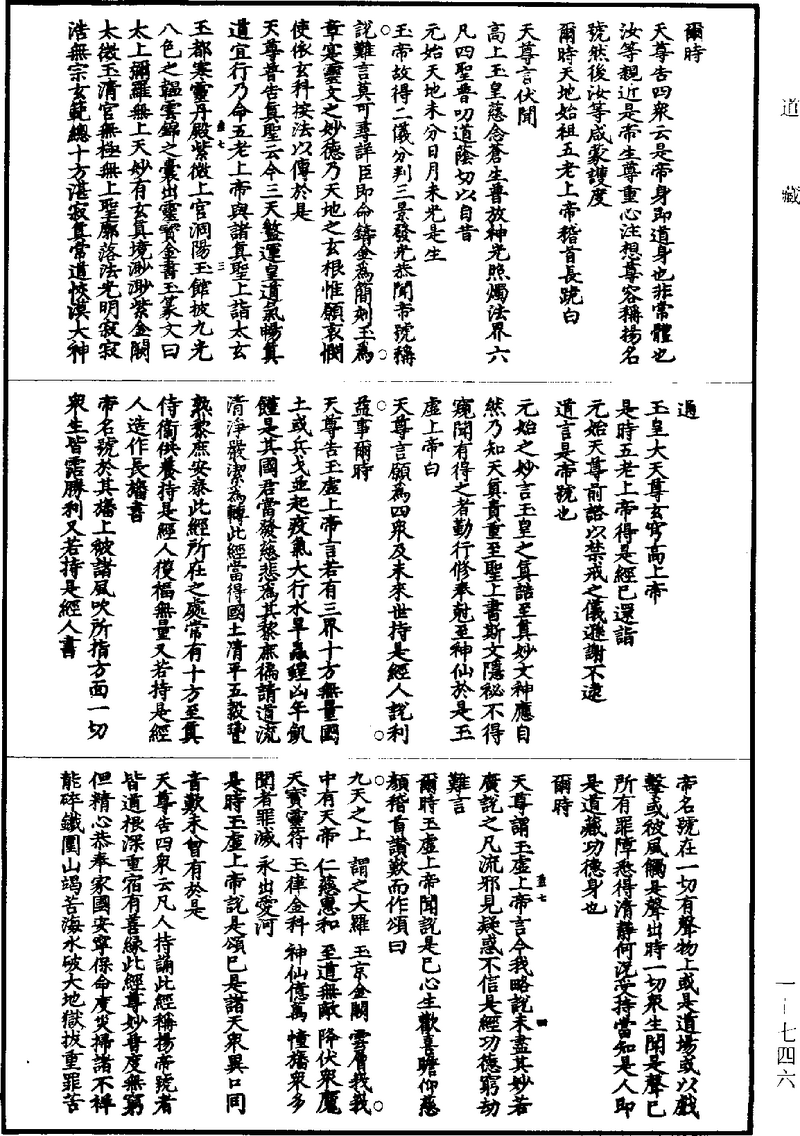 道藏
爾時
天尊告四衆云是帝身即道身也非常體也
汝等親近是帝生尊重心注想尊容稱揚名
號然後汝等咸蒙護度
爾時天地始祖五老上帝稽首長跪白
天尊言伏聞
高上玉皇慈念蒼生普放神光照燭法界六
凡四聖普叨道蔭切以自昔
元始天地未分日月未光是生
玉帝故得二儀分判三景發光恭聞帝號稱
說難言莫可尋詳臣即命鑄金爲簡刻玉爲
章寔靈文之妙德乃天地之玄根惟願哀憫
使依玄科按法以傳於是
天尊普告眞聖云今三天盤運皇道氣暢眞
道宜行乃命五老上帝與諸眞聖上詣太玄
玉都寒靈丹殿紫微上宮洞陽玉館披九光
八色之韞雲錦之囊出靈寶金書玉篆文曰
太上彌羅無上天妙有玄眞境渺渺紫金闕
太微玉清宮無極無上聖廓落法光明寂寂
浩無宗玄範總十方湛寂眞常道恢漠大神
通
玉皇大天尊玄穹高上帝
是時五老上帝得是經已還詣
元始天尊前諮以禁戒之儀遜謝不逮
道言是帝號也
元始之妙言玉皇之眞誥至眞妙文神應自
然乃知天眞貴重至聖上書斯文隱祕不得
窺聞有得之者勤行修奉剋至神仙於是玉
虛上帝白
天尊言願爲四衆及未來世持是經人說利
益事爾時
天尊告玉虛上帝言若有三界十方無量國
土或兵戈並起疫氣大行水旱蟲蝗凶年飢
饉是其國君當發慈悲爲其黎庶徧請道流
清淨嚴潔爲轉此經當得國土清平五穀豐
熟黎庶安泰此經所在之處常有十方至眞
侍衛供養持是經人獲福無量又若持是經
人造作長旛書
帝名號於其旛上被諸風吹所指方面一切
衆生皆霑勝利又若持是經人書
帝名號在一切有聲物上或是道場或以戲
擊或被風觸是聲出時一切衆生聞是聲已
所有罪障悉得清靜何況受持當知是人即
是道藏功德身也
爾時
天尊謂玉虛上帝言今我略說未盡其妙若
廣說之凡流邪見疑惑不信是經功德窮劫
難言
爾時玉虛上帝聞說是已心生歡喜瞻仰慈
顏稽首讚歎而作頌曰
九天之上 謂之大羅 玉京金闕 雲層峩峩
中有天帝 仁慈惠和 至道無敵 降伏衆魔
天寶靈符 玉律金科 神仙億萬 幢旛衆多
聞者罪滅 永出愛河
是時玉虛上帝說是頌已是諸天衆異口同
音歎未曾有於是
天尊告四衆云凡人持誦此經稱揚帝號者
皆道根深重宿有善緣此經尊妙普度無窮
但精心恭奉家國安寧保命度災掃諸不祥
能碎鐵圍山竭苦海水破大地獄拔重罪苦
一—七四六